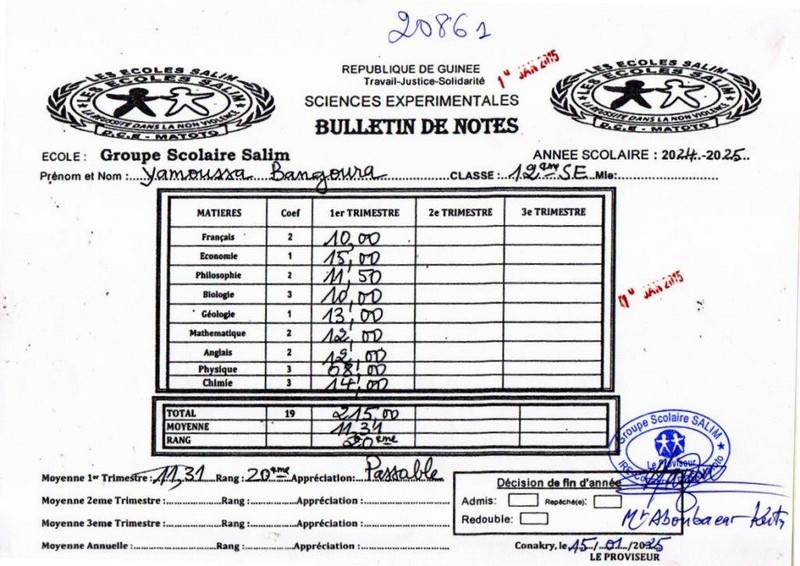 20861
1° JAN 2015
REPUBLIQUE DE GUINEE
Travail-Justice-Solidarité
SCIENCES EXPERIMENTALES
BULLETIN DE NOTES
LES ECOLES SALIM
LES ECOLES SALIM
LA REUSSITE DANS LA NON VIOLENCE
D.C.E - MATOTO
LES ECOLES SALIM
LES ECOLES SALIM
LA REUSSITE DANS LA NON VIOLENCE
D.C.E - MATOTO
ECOLE : Groupe Scolaire Salim ANNEE SCOLAIRE : 2024.-2025..
Prénom et Nom :...Yamoussa Bangoura CLASSE : 12eme SE Mle:
MATIERES Coef 1er TRIMESTRE 2e TRIMESTRE 3e TRIMESTRE
Français 2 10,00
Economie 1 15,00
Philosophie 2 11,50
Biologie 3 10,00
Géologie 1 13,00
Mathematique 2 12,00
Anglais 2 12,00
Physique 3 08,00
Chimie 3 14,00
1° JAN 2015
TOTAL 19 215,00
MOYENNE 11,31
RANG 20eme
Groupe Scolaire SALIM
Le Proviseur
Moyenne 1er Trimestre : 11,31 Rang : 20eme Appréciation : Passable
Moyenne 2eme Trimestre : Rang : Appréciation :
Moyenne 3eme Trimestre : Rang : Appréciation :
Moyenne Annuelle : Rang : Appréciation :
Décision de fin d'année
Admis: Repêché(e):
Redouble:
Mr Aboubacar Keita
Conakry, le 15/01/2025
LE PROVISEUR